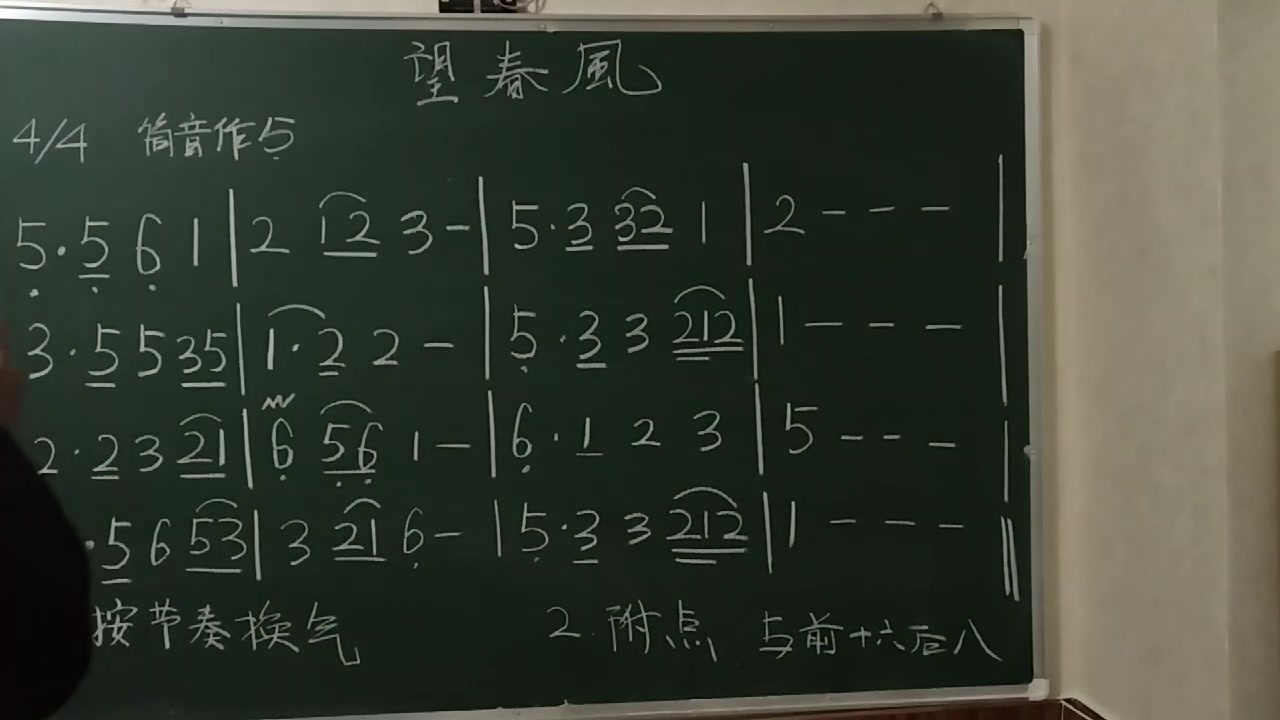 望春風
4/4 筒音作5
5·5 6 1 | 2 12 3 - | 5·3 32 1 | 2 - - - |
3·5 5 35 | 1·2 2 - | 5·3 3 212 | 1 - - - |
2·2 3 21 | 6 56 1 - | 6·1 2 3 | 5 - - - |
·5 6 53 | 3 21 6 - | 5·3 3 212 | 1 - - - ||
按节奏换气 2. 附点 与前十六后八